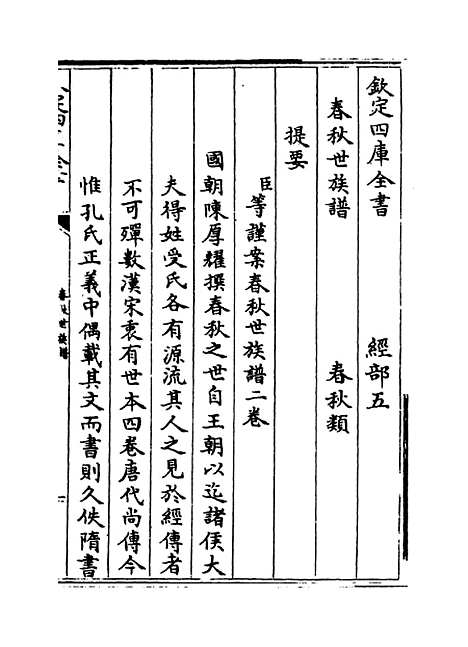 欽定四庫全書 經部五
春秋世族譜 春秋類
提要
臣等謹案春秋世族譜二卷
國朝陳厚耀撰春秋之世自王朝以迄諸侯大
夫得姓受氏各有源流其人之見於經傳者
不可殫數漢宋衷有世本四卷唐代尚傳今
惟孔氏正義中偶載其文而書則久佚隋書
春秋世族譜